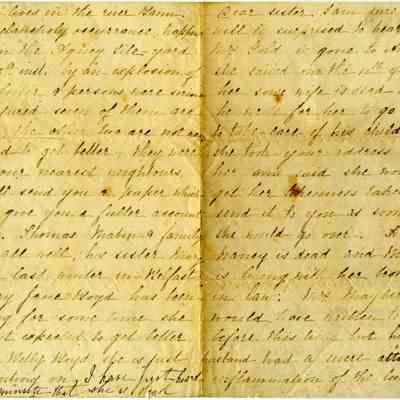 lives in the river Bann.
melancholy occurrance happen
in the Spiney Tile-yard
inst. by an explosion of
9 persons were seriou
jured seven of them are
the other two are not
d to get better, they were
our nearest neighbours,
send you a paper which
give you a fuller account
Thomas Mabin & family
all well, his sister Mary
last winter in Belfast
ry Jane Boyd has been
ng for some time she
not expected to get better
Nelly Boyd, she is just
I have just heard
minute that she is dead
Dear sister, I am sure
will be surprised to hear
Mrs Todd is gone to
she sailed on the
her sons wife is dead
he wrote for her to go
to take care of his child
she took your address
her and said she wou
get her likeness taken
send it to you as soon
she would go over.
Nancy is dead and
is living with her bro
in law. Mrs
would have written t
before this time but h
husband had a severe atta
inflammation of the lun